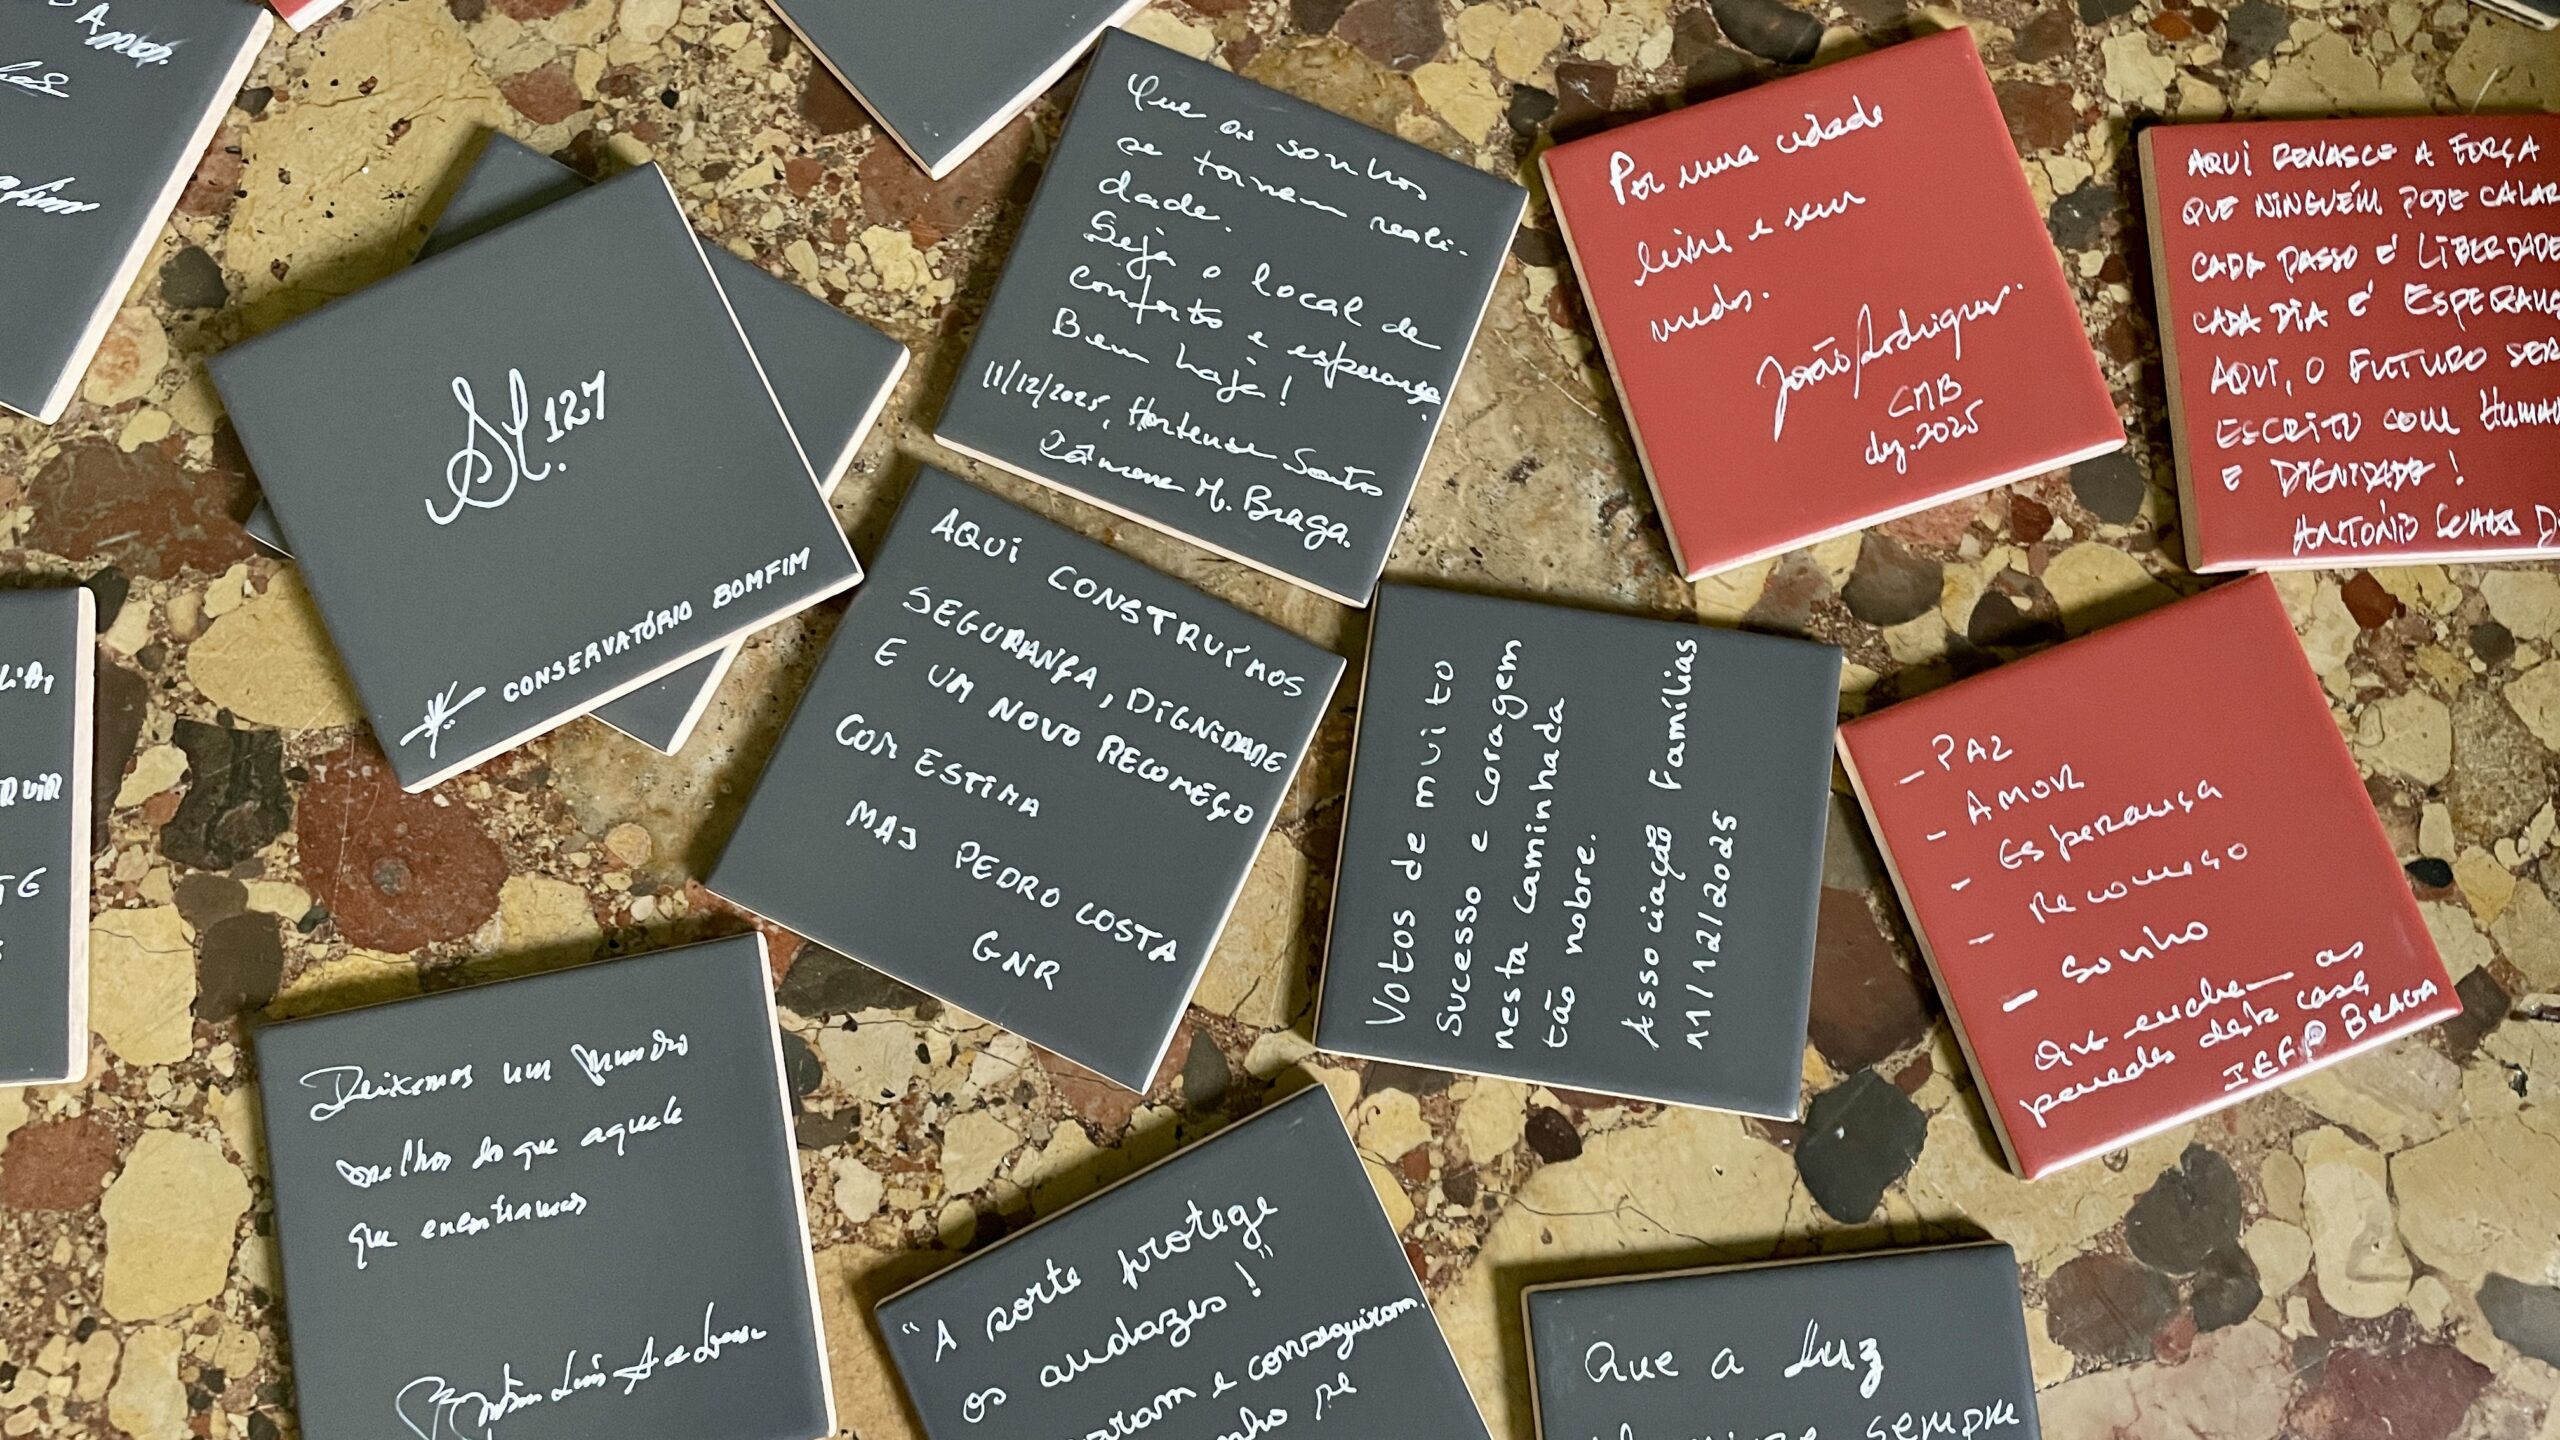 Amor.
SL. 127
CONSERVATÓRIO BOMFIM
Que os sonhos
se tornem reali-
dade.
Seja o local de
conforto e esperança.
Bem haja!
11/12/2025, Hortense Santos
Câmara M. Braga.
Por uma cidade
livre e sem
medos.
João Rodrigues.
CMB
dez. 2025
AQUI RENASCE A FORÇA
QUE NINGUÉM PODE CALAR
CADA PASSO É LIBERDADE
CADA DIA É ESPERANÇ
AQUI, O FUTURO SER
ESCRITO COM HUMAN
E DIGNIDADE!
ANTÓNIO
AQUI CONSTRUÍMOS
SEGURANÇA, DIGNIDADE
E UM NOVO RECOMEÇO
COM ESTIMA
MAJ PEDRO COSTA
GNR
Votos de muito
sucesso e coragem
nesta caminhada
tão nobre.
Associação Famílias
11/12/2025
- PAZ
- AMOR
- Esperança
- Recomeço
- Sonho
que enchem as
paredes desta casa
IEFP BRAGA
Deixemos um mundo
melhor do que aquele
que encontramos
"A sorte protege
os audazes!"
e conseguiram.
Que a Luz
sempre